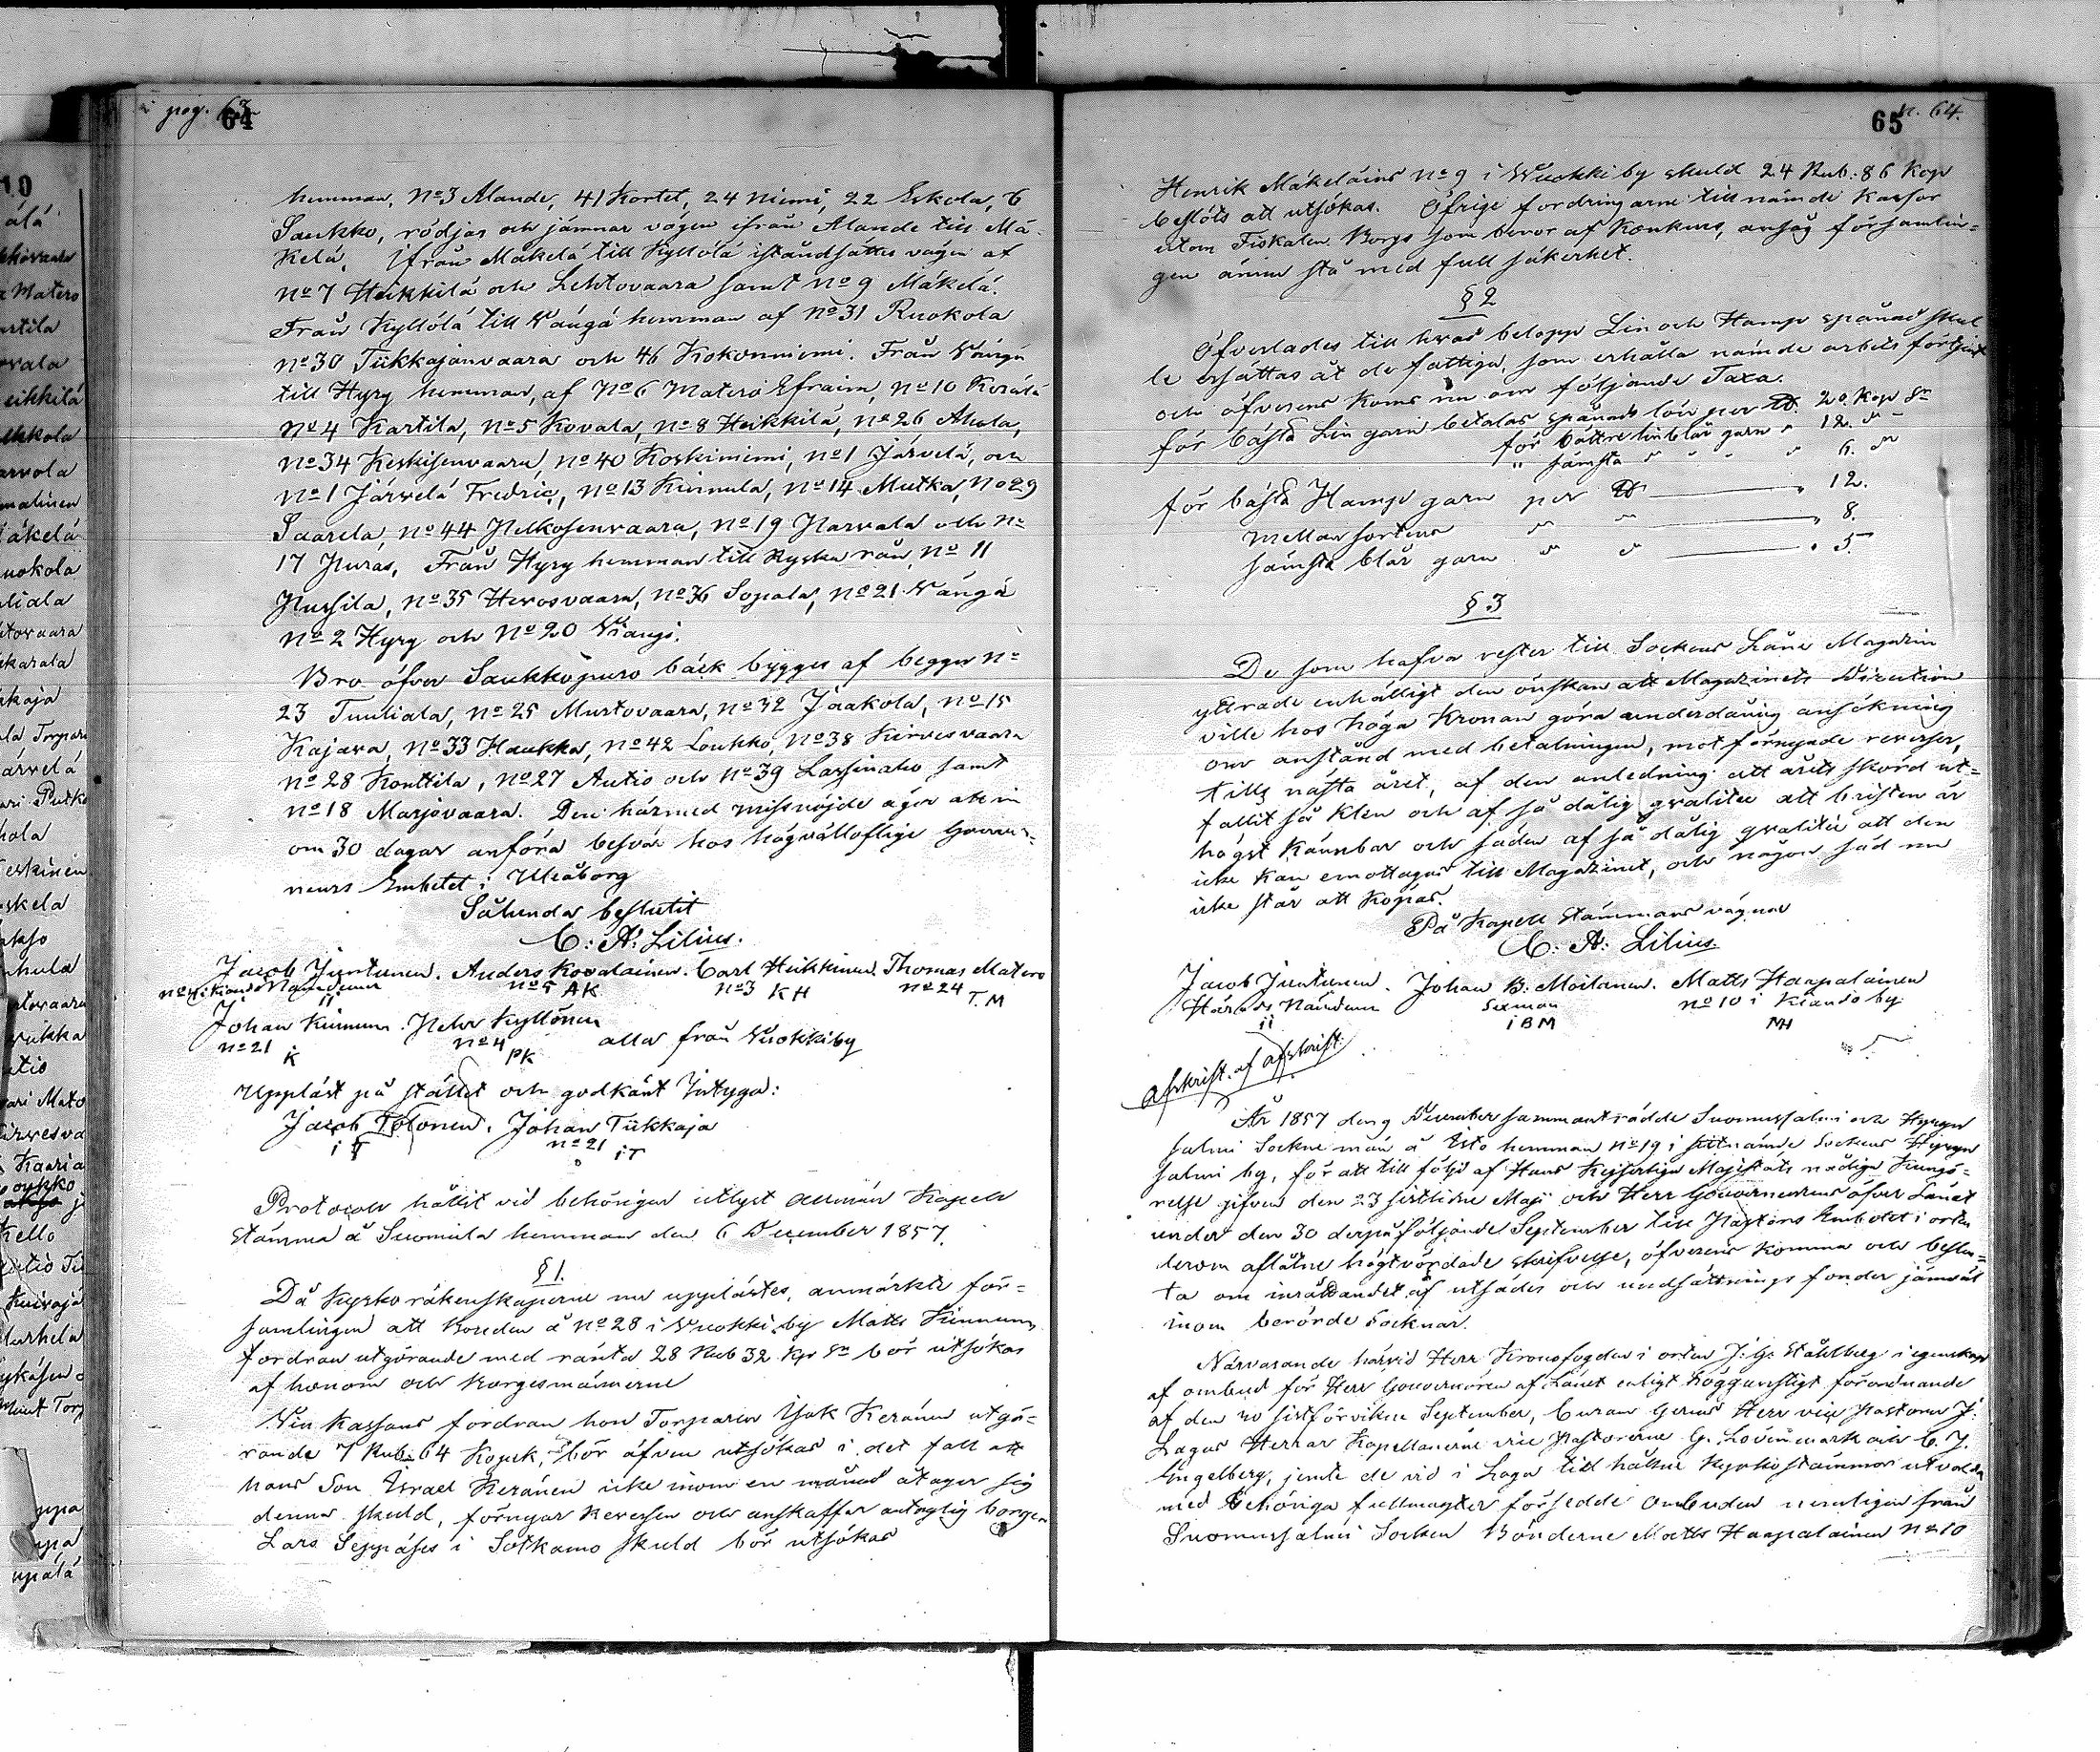 pag. 63
64
hemman, No 3 Alande, 41 Kortet, 24 Niemi, 22 Eskola, 6
Saukko, rödjar och jämnar vägen ifrån Alande till Mä-
kelä. Ifrån Mäkelä till Kyllölä iståndsättes vägen af
No 7 Heikkilä och Lehtovaara samt No 9 Mäkelä.
Från Kyllölä till Wängä hemman af No 31 Ruokola
No 30 Tiikkajanvaara och 46 Kokonniemi. Från Wängä
till Hyry hemman, af No 6 Matero Efraim, No 10
No 4 Kartila, No 5 Kovala, No 8 Heikkilä, No 26 Ahola,
No 34 Keskisenvaara, No 40 Koskiniemi, No 1 Järvelä, och
No 1 Järvelä Fredric, No 13 Kinnula, No 14 Mutka, No 29
Saarela, No 44 Pelkosenvaara, No 19 Parvala och No
17 Puras. Från Hyry hemman till Ryska rån, No 11
Pussila, No 35 Hervosvaara, No 36 Sopala, No 21 Wängä
No 2 Hyry och No 20 Wiangi.
Bro öfver Saukkopuro bäck bygges af begges No
23 Tuuliala, No 25 Murtovaara, No 32 Jaakola, No 15
Kajava, No 33 Haukka, No 42 Loukko, No 38 Kirvesvaara
No 28 Konttila, No 27 Autio och No 39 Lassinaho samt
No 18 Marjovaara. Den härmed missnöjde äger att in
om 30 dagar anföra besvär hos högvälloflige Gouver-
neurs Embetet i Uleåborg
Sålunda beslutit
C: A: Lilius.
Jacob Juntunen. Anders Kovalainen. Carl Heikkinen. Thomas Matero
No 4 i Kiando Nämdeman No 5 AK No 3 KH No 24 T.M
Johan Kinnunen. Petter Kyllönen
No 21 K No 4 PK alla från Wuokki by
Uppläst på stället och godkänt Intyga:
Jacob Tolonen. Johan Tiikkaja
i T No 21 i T
Protocoll hållit vid behörigen utlyst allmän Kapell
stämma å Suomula hemman den 6 December 1857.
§ 1.
Då Kyrko räkenskaperne nu upplästes, anmärkte för-
samlingen att Bonden å No 28 i Wuokki by Matts Kinnunens
fordran utgörande med ränta 28 Rub 32 Kop Sr bör utsökas
af honom och Borgesmännerne
Vin Kassans fordran hos Torparen Isak Keränen utgö-
rande 7 Rub: 64 Kopek, bör äfven utsökas i det fall att
hans Son Israel Keränen icke inom en månad åtager sig
denna skuld, förnyar Reversen och anskaffar antaglig borgen
Lars Seppäses i Sotkamo skuld bör utsökas
65
p. 64.
Henrik Mäkeläins No 9 i Wuokki by skuld 24 Rub: 86 Kop
beslöts att utsökas. Öfrige fordringarne till nämde Kassor
utom Fiskalen Borgs som beror af Konkurs, ansåg församlin-
gen ännu stå med full säkerhet.
§ 2
Öfverlades till hvad belopp Lin och Hamp spånad skul
le ersättas åt de fattiga, som erhålla nämde arbets förtjent
och öfverens koms nu om följande Taxa.
för bästa Lin garn betalas spånads lön per ℔. 20. Kop Sr
för bättre linblår garn " 12. "
" sämsta " " " " 6. "
för bästa Hamp garn per ℔ — " 12.
mellan sortens " " — " 8.
sämsta blår garn " " — " 5.
§ 3
De som hafva rester till Sockens Låne Magazin
yttrade enhälligt den önskan att Magazinets Direction
ville hos höga Kronan göra underdånig ansökning
om anstånd med betalningen, mot förnyade reverser,
tills nästa året, af den anledning att årets skörd ut-
fallit så klen och af så dålig qvalitee att bristen är
högst kännbar och säden af så dålig qvalitée att den
icke kan emottagas till Magazinet, och någon säd nu
icke står att köpas.
På Kapell Stämmans vägnar
C: A: Lilius.
Jacob Juntunen. Johan B. Moilanen. Matts Haapalainen
Härads Nämdeman Sexman No 10 i Kiando by
ii i B M MH
Afskrift af afskrift.
År 1857 den 9 December sammanträdde Suomussalmi och Hyryn
salmi Sockne män å Isto hemman No 19 i sistnämde Sockens Hyryn
salmi by, för att till följd af Hans Kejserliga Majestäts nådiga Kungö-
relse gifven den 23 sistlidne Maji och Herr Gouverneurens öfver Länet
under den 30 derpåföljande September till Pastors Embetet i orten
derom aflåtne högtvördade skrifvelse, öfverens komma och beslu-
ta om inrättandet af utsädes och undsättnings fonder jämväl
inom berörde Socknar.
Närvarande härvid Herr Kronofogden i orten J. G. Ståhlberg i egenskap
af ombud för Herr Gouverneuren af Länet enligt höggunstigt förordnande
af den 30 sistförvikne September, Curam Gerens Herr vice Pastoren J:
Lagus Herrar Kapellanerne vice Pastorerne G. Lövenmark och C. J.
Engelberg, jemte de vid i Laga till hållne Kyrkostämmor utvalda
med behöriga fullmagter försedde Ombuden nemligen från
Suomussalmi Socken Bönderne Matts Haapalainen No 10